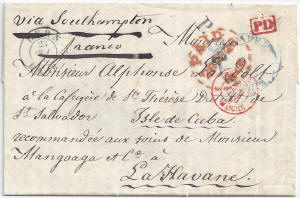 via Southampton
franco
PD
Monsieur Alphonse
à la Cafeyère de Ste Thérèse
St Salvador Isle de Cuba
recommandée aux soins de Monsieur
Mangoaga et Cie à
La Havane.